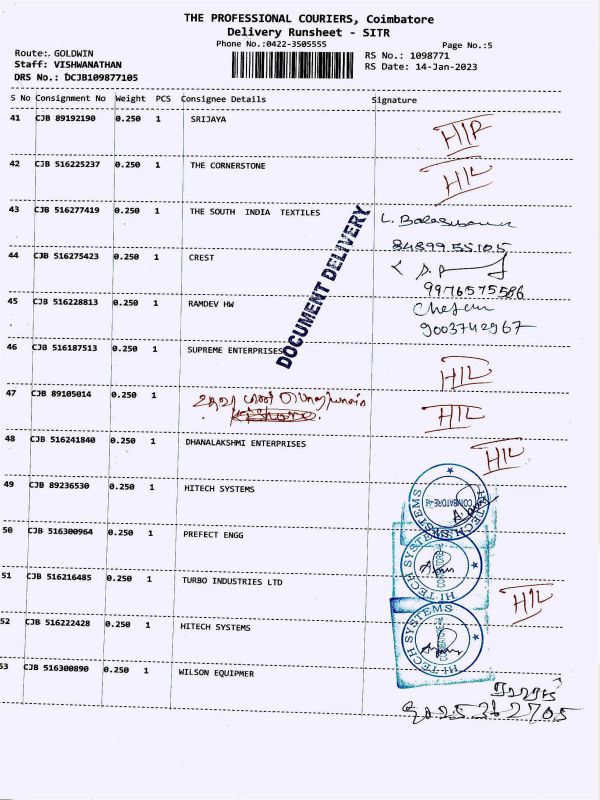 THE PROFESSIONAL COURIERS, Coimbatore
Delivery Runsheet - SITR
Phone No.:0422-3505555
Page No.:5
Route:. GOLDWIN
Staff: VISHWANATHAN
DRS No.: DCJB109877105
RS No.: 1098771
RS Date: 14-Jan-2023
S No Consignment No Weight PCS Consignee Details Signature
41 CJB 89192190 0.250 1 SRIJAYA
42 CJB 516225237 0.250 1 THE CORNERSTONE HIL
43 CJB 516277419 0.250 1 THE SOUTH INDIA TEXTILES L.
8489955105
44 CJB 516275423 0.250 1 CREST
9976575586
45 CJB 516228813 0.250 1 RAMDEV HW
9003742967
DOCUMENT DELIVERY
46 CJB 516187513 0.250 1 SUPREME ENTERPRISES HIL
47 CJB 89105014 0.250 1 HIL
48 CJB 516241840 0.250 1 DHANALAKSHMI ENTERPRISES HIL
49 CJB 89236530 0.250 1 HITECH SYSTEMS
HI-TECH SYSTEMS
50 CJB 516300964 0.250 1 PREFECT ENGG
HI-TECH SYSTEMS
51 CJB 516216485 0.250 1 TURBO INDUSTRIES LTD HIL
52 CJB 516222428 0.250 1 HITECH SYSTEMS
HI-TECH SYSTEMS
53 CJB 516300890 0.250 1 WILSON EQUIPMER
9025362705